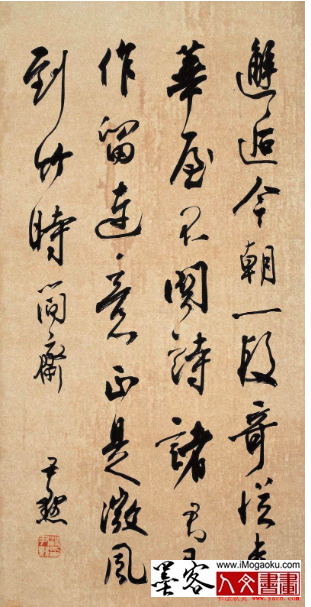 邂逅今朝一段奇從來
華屋不關詩諸君且
作留連意正是微風
到竹時 簡齋
尹默
www.iMogaoku.com
墨客
人文書畫